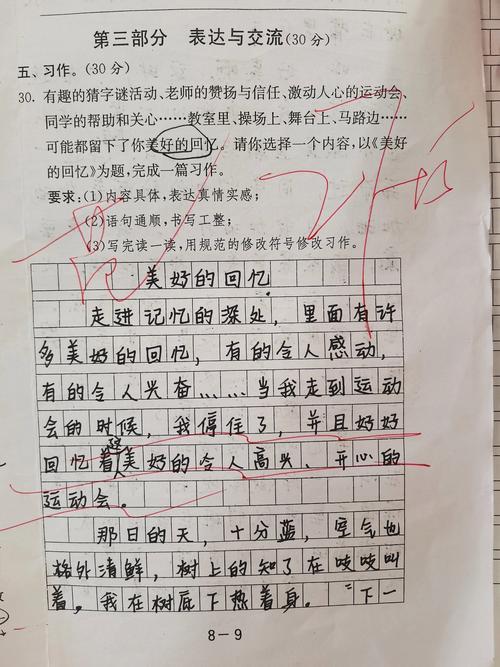 第三部分 表达与交流(30分)
五、习作。(30分)
30. 有趣的猜字谜活动、老师的赞扬与信任、激动人心的运动会、
同学的帮助和关心……教室里、操场上、舞台上、马路边……
可能都留下了你美好的回忆。请你选择一个内容,以《美好
的回忆》为题,完成一篇习作。
要求:(1)内容具体,表达真情实感;
(2)语句通顺,书写工整;
(3)写完读一读,用规范的修改符号修改习作。
美好的回忆
走进记忆的深处,里面有许
多美好的回忆,有的令人感动,
有的令人兴奋……当我走到运动
会的时候,我停住了,并且好好
回忆着美好的令人高兴、开心的
运动会。
那日的天,十分蓝,空气也
格外清鲜,树上的知了在吱吱叫
着,我在树底下热着身。“下一
8-9